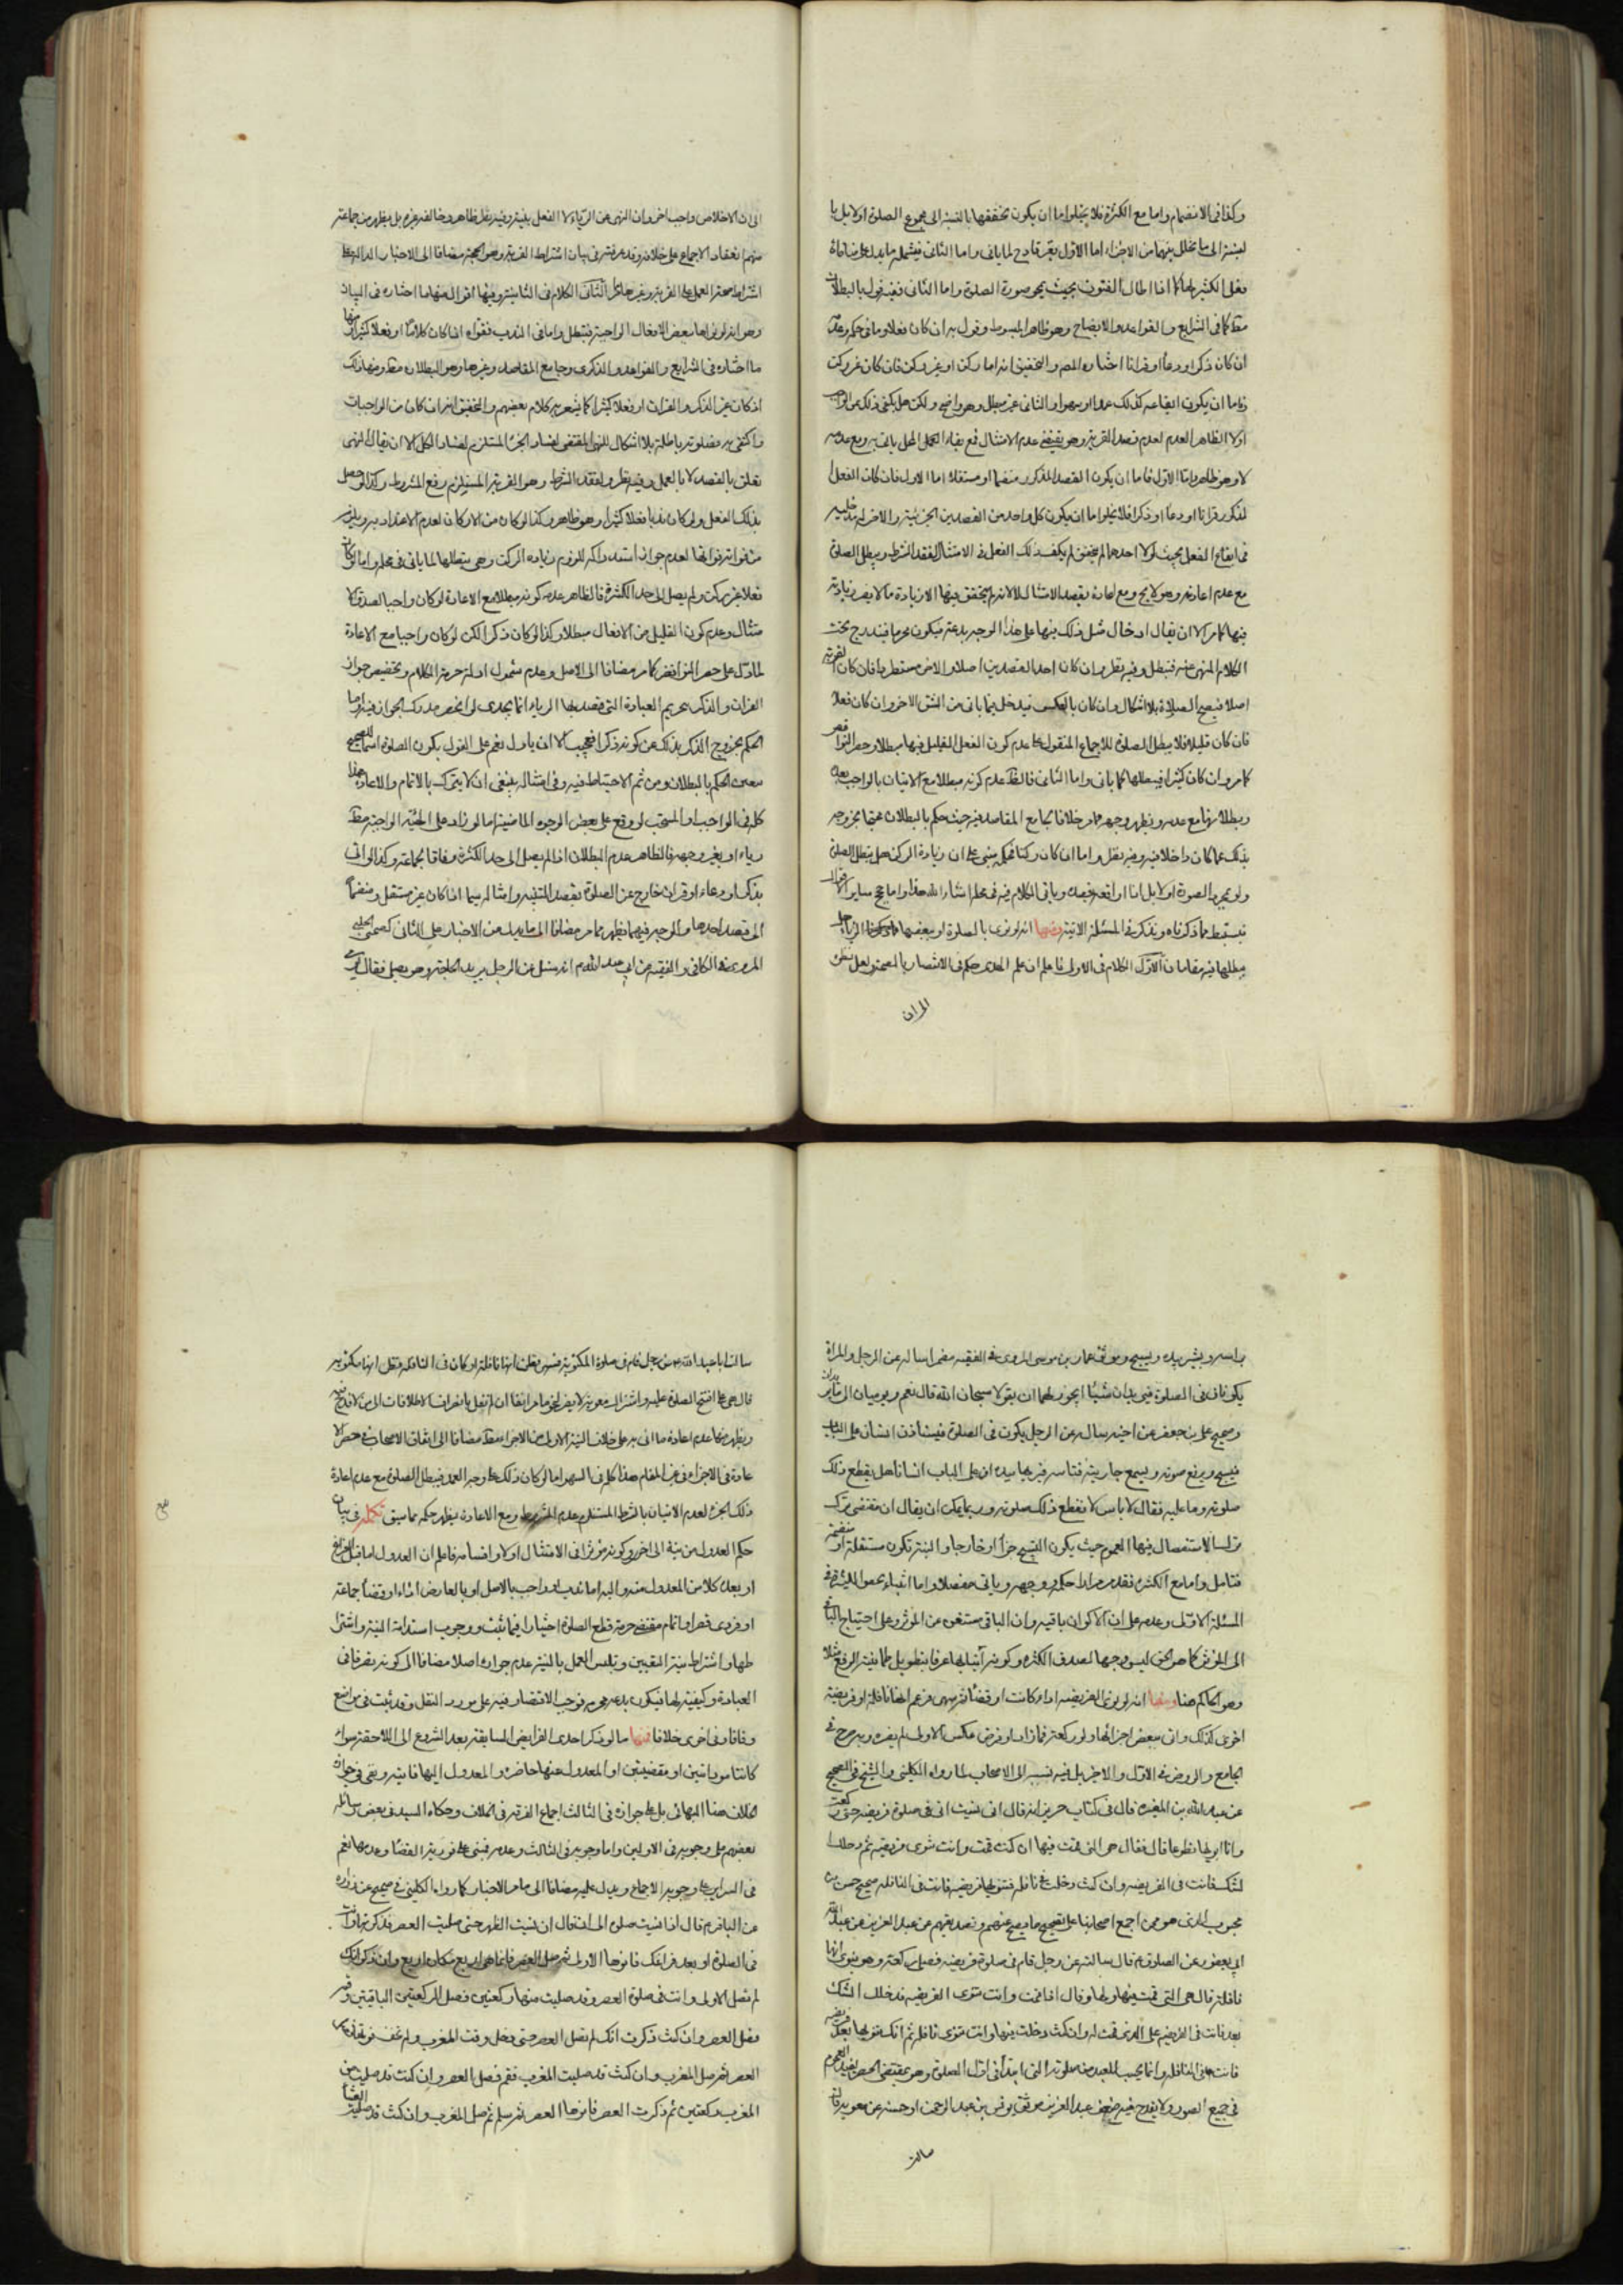 وكذا في الانضمام واما مع الكثرة فلا يخلوا اما ان يكون تحققها بالنسبة الى مجموع الصلوة اولا بل با
لنسبة الى ما تخلل بينهما من الاجزاء اما الاول فغير قادح لما ياتي واما الثاني فيشمله ما يدل على منافاة
فعل الكثير لها كما اذا طال القنوت بحيث يمحو صورة الصلوة واما الثاني ففيه قول بالبطلان
مطلقا كما في الشرايع والقواعد والايضاح وهو ظاهر المبسوط وقول به ان كان فعلا وما في حكمه وعدمه
ان كان ذكرا او دعاء او قرانا اختاره المصنف والتحقيق انه اما ركن او غير ركن فان كان غير ركن
فاما ان يكون ايقاعه كذلك عمدا او سهوا والثاني غير مبطل وهو واضح ولكن هل يكفي ذلك عن الواجب
اولا الظاهر العدم لعدم قصد القربة وهو يقتضي عدم الامتثال فمع بقاء المحل ياتي به ومع عدمه
لا وهو ظاهر واما الاول فاما ان يكون القصد المذكور منضما او مستقلا اما الاول فان كان الفعل
المذكور قرانا او دعاء او ذكرا فلا يخلوا اما ان يكون كل واحد من القصدين الجزئية والاخر له مدخلية
في ايقاع الفعل بحيث لولا احدهما لم يتحقق لم يكف ذلك الفعل في الامتثال لفقد الشرط ويبطل الصلوة
مع عدم اعادته وهو لا يخ ومع اعادته بقصد الامتثال لا لانه لم يتحقق فيها الا زيادة ما لا يضر زيادته
فيها كما مر الا ان يقال ادخال مثل ذلك فيها على هذا الوجه بدعة فيكون محرما فيندرج تحت
الكلام المنهي عنه فتبطل وفيه نظر وان كان احد القصدين اصلا والاخر مستطردا فان كان القربة
اصلا فيصح الصلوة بلا اشكال وان كان بالعكس فيدخل فيما ياتي من الشق الاخر وان كان فعلا
فان كان قليلا فلا يبطل الصلوة للاجماع المنقول على عدم كون الفعل القليل فيها مبطلا وحصر النواقض
كما مر وان كان كثيرا فيبطلها كما ياتي واما الثاني فالظاهر عدم كونه مبطلا مع الاتيان بالواجب بعده
وبطلانها مع عدمه ويظهر وجهه مما مر خلافا لجامع المقاصد فيه حيث حكم بالبطلان محتجا بخروجه
بذلك عما كان داخلا فيه وفيه نظر واما ان كان ركنا فحكمه يبتني على ان زيادة الركن هل يبطل الصلوة
ولو بمجرد الصورة اولا بل اذا اوقعه بقصده وياتي الكلام فيه في محله انشاء الله هذا واما حكم ساير الافعال
فيستنبط مما ذكرناه ونذكره في المسئلة الاتية ومنها انه لو نوى بالصلوة او ببعضها الرياء هل
يبطلها فيه مقامان الاول الكلام في الاول فاعلم ان علم الهدى حكم في الانتصار بالصحة ولعل نظره
الى ان
الى ان الاخلاص واجب اخر وان النهي عن الرياء لا الفعل بنيته وفيه نظر ظاهر وخالفه غيره بل يظهر من جماعة
منهم انعقاد الاجماع على خلافه وقد عرفته في بيان اشتراط القربة وهو الحجة مضافا الى الاخبار الدالة على
اشتراط صحة العمل على القربة وغير ها الثاني الكلام في الثانية وفيها اقوال منها ما اختاره في البيان
وهو انه لو نواها ببعض الافعال الواجبة فتبطل واما في الندب فقواه اذا كان كلاما او فعلا كثيرا ومنها
ما اختاره في الشرايع والقواعد والذكرى وجامع المقاصد وغيرها وهو البطلان مطلقا ومنها ذلك
اذ كان غير الذكر والقران او فعلا كثيرا كما يشعر به كلام بعضهم والتحقيق انه ان كان من الواجبات
واكتفى به فصلوته باطلة بلا اشكال للنهي المقتضي لفساد الجزء المستلزم لفساد الكل الا ان يقال النهي
تعلق بالقصد لا بالعمل وفيه نظر ولفقد الشرط وهو القربة المستلزم رفع المشروط وكذا لو حصل
بذلك الفعل ولو كان ندبا فعلا كثيرا وهو ظاهر وكذا لو كان من الاركان لعدم الاعتداد به ويلزم
من فواته فواتها لعدم جواز استدراكه للزوم زيادة الركن وهي مبطلها لما ياتي في محله واما لو كان
فعلا غير ركن ولم يصل الى حد الكثرة فالظاهر عدم كونه مبطلا مع الاعادة لو كان واجبا لصدق الا
متثال وعدم كون القليل من الافعال مبطلا وكذا لو كان ذكرا لكن لو كان واجبا مع الاعادة
لما دل على حصر النواقض كما مر مضافا الى الاصل وعدم شمول ادلة حرمة الكلام وتخصيص جواز
القران والذكر بتحريم العبادة التي قصد بها الرياء انما يجدى لو انحصر مدرك الجواز فيه واما
الحكم بخروج الذكر بذلك عن كونه ذكرا فعجيب الا ان ياول نعم على القول بكون الصلوة اسما للصحيح
تعين الحكم بالبطلان ومن ثم الاحتياط فيه وفي امثاله ينبغي ان لا يترك بالاتمام والاعادة هذا
كله في الواجب او المستحب لو وقع على بعض الوجوه الماضية اما لو زاد على الهيئة الواجبة مطلقا
رياء او بغير وجهه فالظاهر عدم البطلان اذا لم يصل الى حد الكثرة وفاقا لجماعة وكذا لو اتى
بذكر او دعاء او قران خارج عن الصلوة بقصد التنبيه وامثاله سيما اذا كان غير مستقل ومنضما
الى قصد احدها والوجه فيهما يظهر مما مر مضافا الى ما يدل من الاخبار على الثاني كصحيح الحلبي
المروي في الكافي والفقيه عن ابي عبد الله ع انه سئل عن الرجل يريد الحاجة وهو يصلي فقال يومى
براسه ويشير بيده ويسبح وموثق عمار بن موسى المروي في الفقيه مضمرا ساله عن الرجل والمراة
يكونان في الصلوة فيريدان شيئا ايجوز لهما ان يقولا سبحان الله قال نعم ويوميان الى ما يريدان
وصحيح علي بن جعفر عن اخيه سال عن الرجل يكون في الصلوة فيستاذن انسان على الباب
فيسبح ويرفع صوته ويسمع جاريته فتاتيه فيريها بيده ان على الباب انسانا هل يقطع ذلك
صلوته وما عليه فقال لا باس لا يقطع ذلك صلوته وربما يمكن ان يقال ان مقتضى ترك
ترك الاستفصال فيها العموم حيث يكون التسبيح جزأ او خارجا والنية تكون مستقلة او منضمة
فتامل واما مع الكثرة فقد مر مرارا حكمه ووجهه وياتي مفصلا واما ابتناء بعض المدققين
المسئلة الاول وعدمه على ان الاكوان باقية وان الباقي مستغن عن الموثر وعلى احتياج الباقي
الى الموثر كما هو الحق ليس وجها لصدق الكثرة وكونه اتيا بها عرفا بتطويل طمانينة الرفع مثلا
وهو الحاكم هنا ومنها انه لو نوى الفريضة اداء كانت او قضاء ثم سهى فزعم انها نافلة او فريضة
اخرى كذلك واتى ببعض اجزائها ولو ركعة فما زاد او فرض عكس الاول لم يضره وبه صرح في
الجامع والروض في الاول والاخر بل فيه نسبه الى الاصحاب لما رواه الكليني والشيخ في الصحيح
عن عبد الله بن المغيرة قال في كتاب حريز انه قال اني نسيت اني في صلوة فريضة حتى ركعت
وانا انويها تطوعا قال فقال هي التي قمت فيها ان كنت قمت وانت تنوى فريضة ثم دخلك
الشك فانت في الفريضة وان كنت دخلت في نافلة فنويتها فريضة فانت في النافلة صحيح حسن بن
محبوب الذي هو ممن اجمع اصحابنا على تصحيح ما يصح عنهم وتصديقهم عن عبد العزيز عن عبد الله بن
ابي يعفور عن الصادق ع قال سالته عن رجل قام في صلوة فريضة فصلى ركعة وهو ينوى انها
نافلة قال هي التي قمت فيها ولها وقال اذا قمت وانت تنوى الفريضة فدخلك الشك
بعد فانت في الفريضة على الذي قمت له وان كنت دخلت فيها وانت تنوى نافلة ثم انك تنويها بعد فريضة
فانت في النافلة وانما يحسب للعبد من صلوته التي ابتدأ في اول الصلوة وهو بمقتضى الحصر يفيد العموم
في جميع الصور ولا يقدح فيه ضعف عبد العزيز موثق يونس بن عبد الرحمن او حسنه عن معوية قال
سالت
سالت ابا عبد الله ع عن رجل قام في صلوة المكتوبة فسهى فظن انها نافلة او كان في النافلة فظن انها مكتوبة
قال هي على ما افتتح الصلوة عليه واشتراك معوية لا يضر لنحو ما مر انفا ان لم نقل بانصراف الاطلاقات الى من لا قدح فيه
ويظهر منها عدم اعادة ما اتى به على خلاف النية الاولى من الاجزاء مطلقا مضافا الى اتفاق الاصحاب في حصر الا
عادة في الاجزاء في غير المقام هذا كله في السهو اما لو كان ذلك على وجه العمد فيبطل الصلوة مع عدم اعادة
ذلك الجزء لعدم الاتيان بالشرط المستلزم عدم المشروط ومع الاعادة يظهر حكمه مما سبق تكملة في بيان
حكم العدول من نية الى اخرى وكونه موثرا في الامتثال اولا واقسامه فاعلم ان العدول اما قبل الفراغ
او بعده كلا من المعدول منه واليه اما ندب او واجب بالاصل او بالعارض اداء او قضاء جماعة
او فردى قصرا او اتمام مقتضى حرمة قطع الصلوة اختيارا فيما ثبت ووجوب استدامة النية واشترا
طها واشتراط نية التعيين وتلبس العمل بالنية عدم جوازه اصلا مضافا الى كونه تصرفا في
العبادة وكيفية لها فيكون بدعة محرمة فوجب الاقتصار فيه على مورد النقل وقد ثبت في مواضع
وفاقا وفي اخرى خلافا فمنها ما لو ذكر احدى الفرايض السابقة بعد الشروع الى اللاحقة سواء
كانتا مودائتين او مقضيتين او المعدول عنها حاضرة والمعدول اليها فائتة ونفى في جوازه
الخلاف هنا البهائي بل على جوازه في الثالث اجماع الفرقة في الخلاف وحكاه السيد في بعض رسائله
بعضهم على وجوبه في الاولين واما وجوبه في الثالث وعدمه فمبني على فورية القضاء وعدمها نعم
في السراير على وجوبه الاجماع ويدل عليه مضافا الى ما مر الاخبار كما رواه الكليني في صحيح عن زرارة
عن الباقر ع قال اذا نسيت صلوة الى ان قال ان نسيت الظهر حتى صليت العصر فذكرتها وانت
في الصلوة او بعد فراغك فانوها الاولى ثم صل العصر فانما هي اربع مكان اربع وان ذكرت انك
لم تصل الاولى وانت في صلوة العصر وقد صليت منها ركعتين فصل الركعتين الباقيتين وقم
فصل العصر وان كنت ذكرت انك لم تصل العصر حتى دخل وقت المغرب ولم تخف فوتها فصل
العصر ثم صل المغرب وان كنت قد صليت المغرب فقم فصل العصر وان كنت قد صليت من
المغرب ركعتين ثم ذكرت العصر فانوها العصر ثم سلم ثم صل المغرب وان كنت قد صليت العشاء